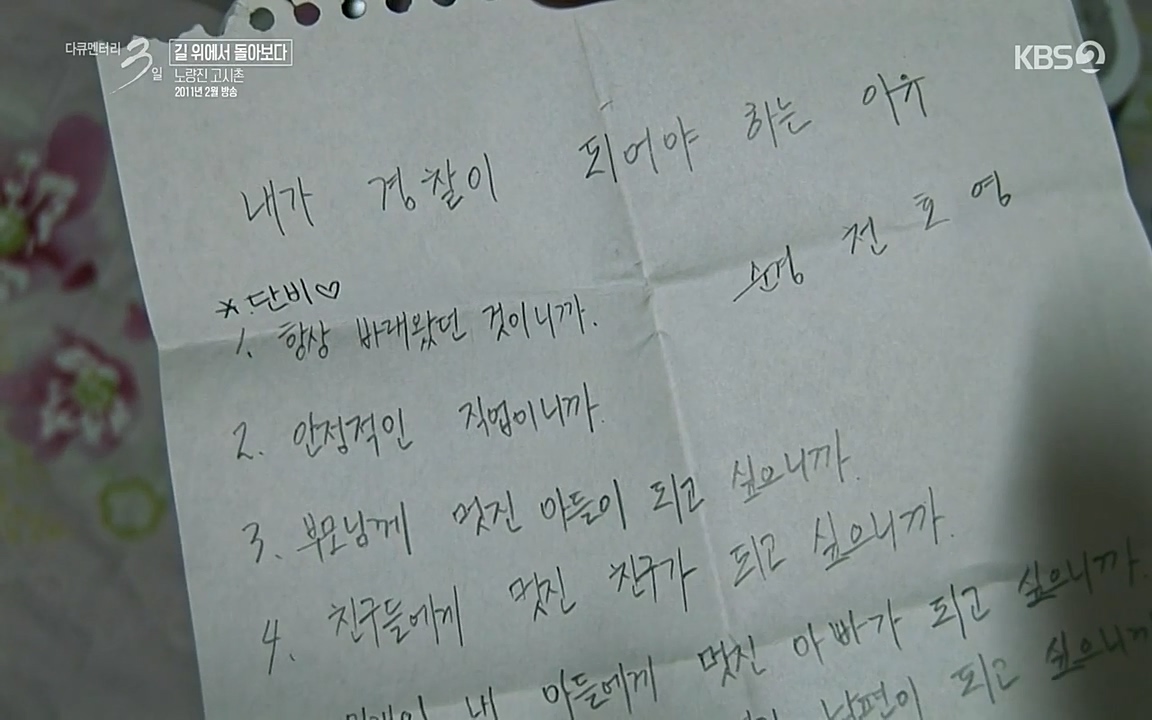 다큐멘터리 3일
길 위에서 돌아보다
노량진 고시촌
2011년 2월 방송
KBS2
내가 경찰이 되어야 하는 이유
순경 전호영
*.단비♡
1. 항상 바래왔던 것이니까.
2. 안정적인 직업이니까.
3. 부모님께 멋진 아들이 되고 싶으니까.
4. 친구들에게 멋진 친구가 되고 싶으니까.
내 아들에게 멋진 아빠가 되고 싶으니까.
남편이 되고 싶으니까